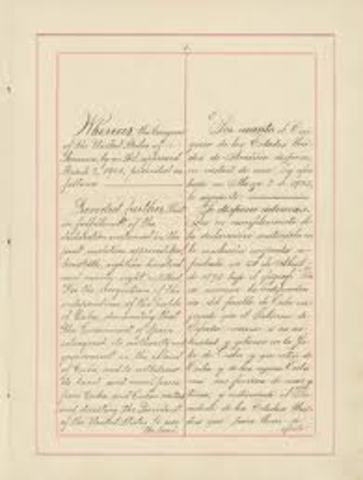 Whereas the Congress
of the United States of
America, by an Act approved
March 2, 1901, provided as
follows:
Provided further, That
in fulfillment of the
declaration contained in the
joint resolution approved
twentieth, eighteen hundred
and ninety-eight, entitled
"For the recognition of the
independence of the people
of Cuba, demanding that
the Government of Spain
relinquish its authority and
government in the island
of Cuba, and to withdraw
its land and naval forces
from Cuba and Cuban waters
and directing the President
of the United States to use
the land
Por cuanto el Con
greso de los Estados Uni
dos de América dispuso,
en virtud de una Ley apro
bada en Marzo 2 de 1901,
lo siguiente:
Se dispone además:
Que en cumplimiento de
la declaración contenida en
la resolución conjunta a
probada en 20 de Abril
de 1898 bajo el epígrafe "Pa
ra reconocer la independen
cia del pueblo de Cuba exi
giendo que el Gobierno de
España renuncie a su au
toridad y gobierno en la Isla
de Cuba y que retire de
Cuba y de las aguas Cuba
nas sus fuerzas de mar y
tierra, y ordenando al Pre
sidente de los Estados Uni
dos que para llevar a
efecto